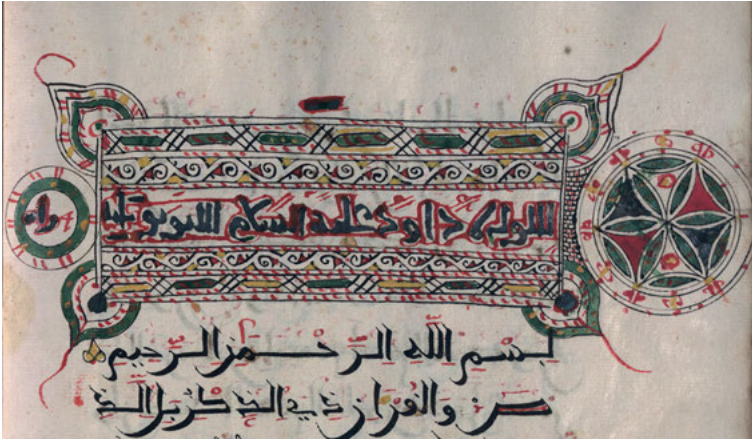 داود عليه السلام
بسم الله الرحمن الرحيم
ص والقران ذي الذكر بل الذ